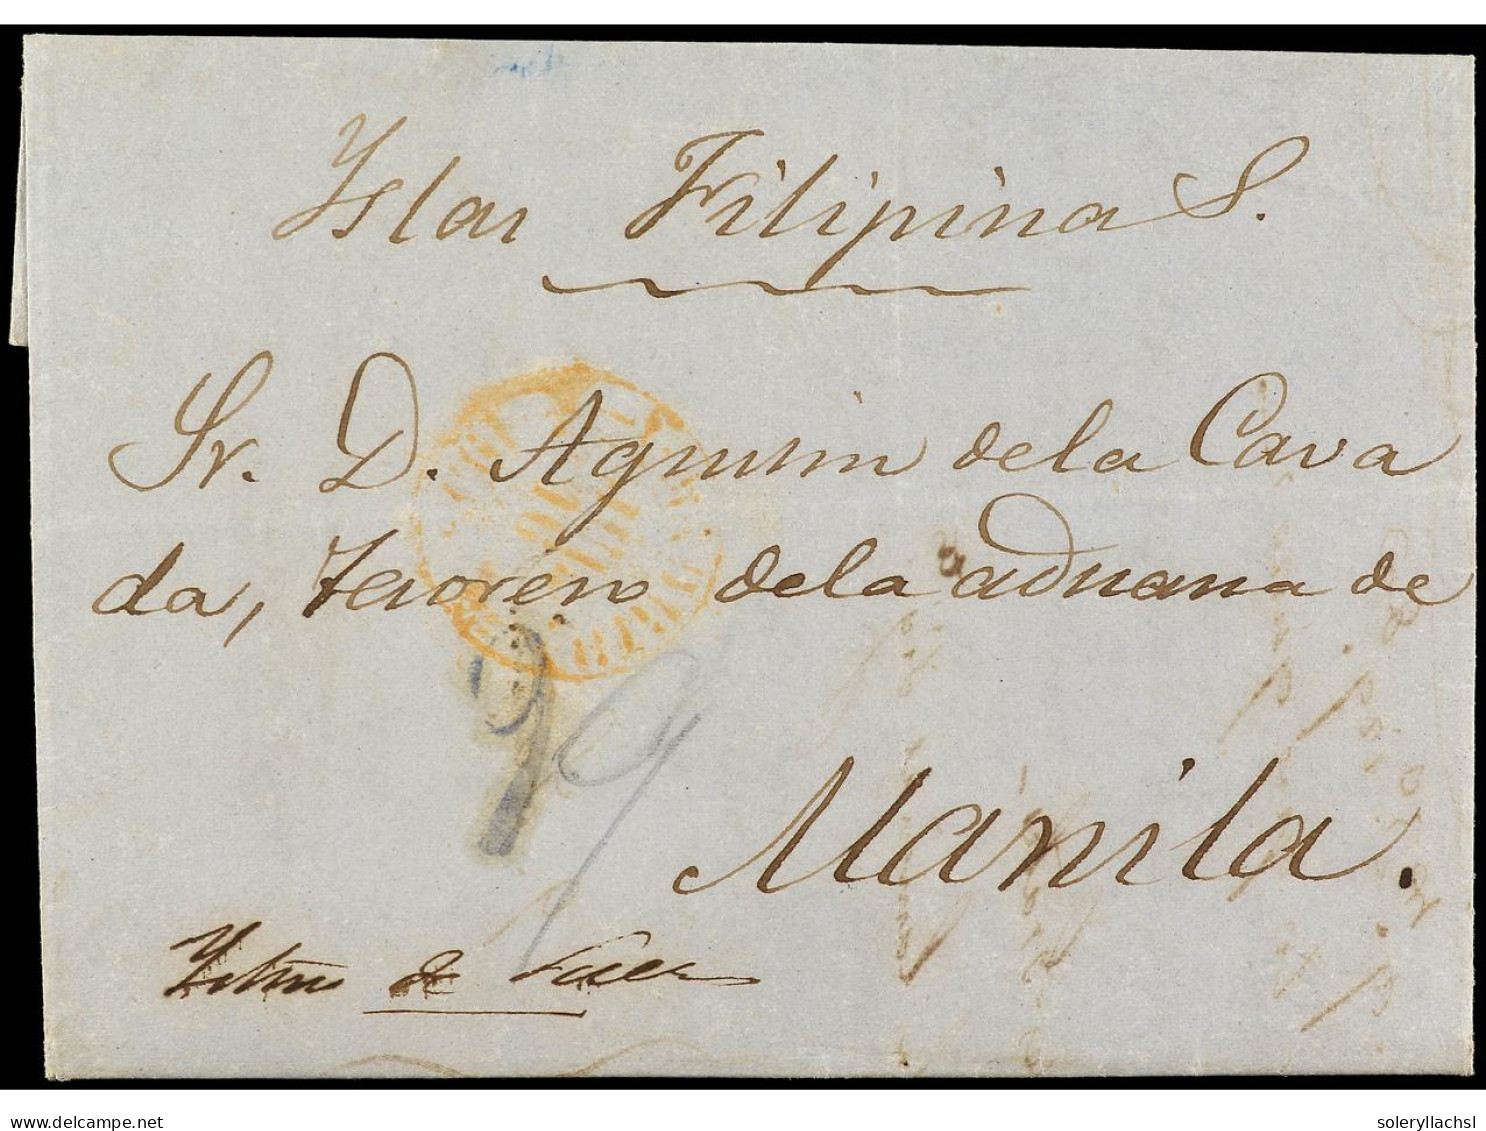 Yslas Filipinas.
Sr. D. Agustin de la Cava
da, Tesorero de la aduana de
9
Manila.
Ystmo de Suez
delcampe.net
soleryllachsl